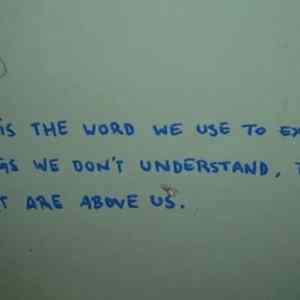 IS THE WORD WE USE TO EX
GS WE DON'T UNDERSTAND, T
T ARE ABOVE US.